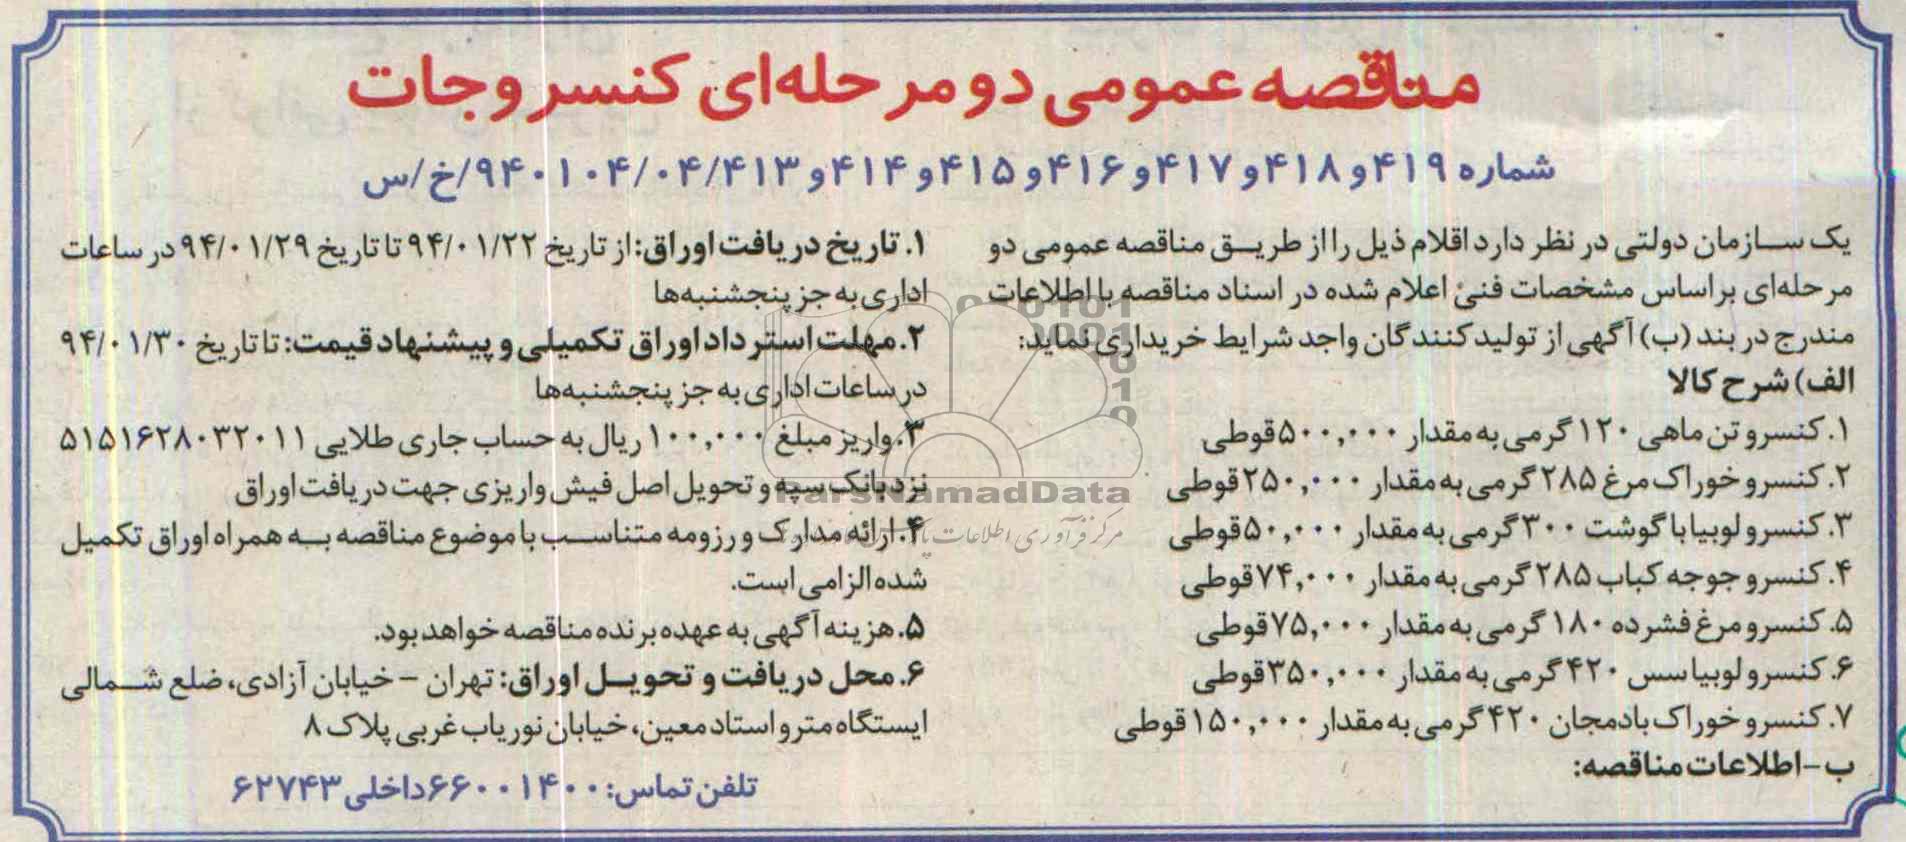 مناقصه عمومی دو مرحله‌ای کنسروجات
شماره ۴۱۹ و ۴۱۸ و ۴۱۷ و ۴۱۶ و ۴۱۵ و ۴۱۴ و ۹۴۰۱۰۴/۰۴/۴۱۳/خ/س
یک سازمان دولتی در نظر دارد اقلام ذیل را از طریق مناقصه عمومی دو
مرحله‌ای براساس مشخصات فنی اعلام شده در اسناد مناقصه با اطلاعات
مندرج در بند (ب) آگهی از تولیدکنندگان واجد شرایط خریداری نماید:
الف) شرح کالا
۱. کنسرو تن ماهی ۱۲۰ گرمی به مقدار ۵۰۰,۰۰۰ قوطی
۲. کنسرو خوراک مرغ ۲۸۵ گرمی به مقدار ۲۵۰,۰۰۰ قوطی
۳. کنسرو لوبیا با گوشت ۳۰۰ گرمی به مقدار ۵۰,۰۰۰ قوطی
۴. کنسرو جوجه کباب ۲۸۵ گرمی به مقدار ۷۴,۰۰۰ قوطی
۵. کنسرو مرغ فشرده ۱۸۰ گرمی به مقدار ۷۵,۰۰۰ قوطی
۶. کنسرو لوبیا سس ۴۲۰ گرمی به مقدار ۳۵۰,۰۰۰ قوطی
۷. کنسرو خوراک بادمجان ۴۲۰ گرمی به مقدار ۱۵۰,۰۰۰ قوطی
ب-اطلاعات مناقصه:
۱. تاریخ دریافت اوراق: از تاریخ ۹۴/۰۱/۲۲ تا تاریخ ۹۴/۰۱/۲۹ در ساعات
اداری به جز پنجشنبه‌ها
۲. مهلت استرداد اوراق تکمیلی و پیشنهاد قیمت: تا تاریخ ۹۴/۰۱/۳۰
در ساعات اداری به جز پنجشنبه‌ها
۳. واریز مبلغ ۱۰۰,۰۰۰ ریال به حساب جاری طلایی ۵۱۵۱۶۲۸۰۳۲۰۱۱
نزد بانک سپه و تحویل اصل فیش واریزی جهت دریافت اوراق
۴. ارائه مدارک و رزومه متناسب با موضوع مناقصه به همراه اوراق تکمیل
شده الزامی است.
۵. هزینه آگهی به عهده برنده مناقصه خواهد بود.
۶. محل دریافت و تحویل اوراق: تهران - خیابان آزادی، ضلع شمالی
ایستگاه مترو استاد معین، خیابان نوریاب غربی پلاک ۸
تلفن تماس: ۶۶۰۰۱۴۰۰ داخلی ۶۲۷۴۳
ParsNamadData
مرکز فرآوری اطلاعات